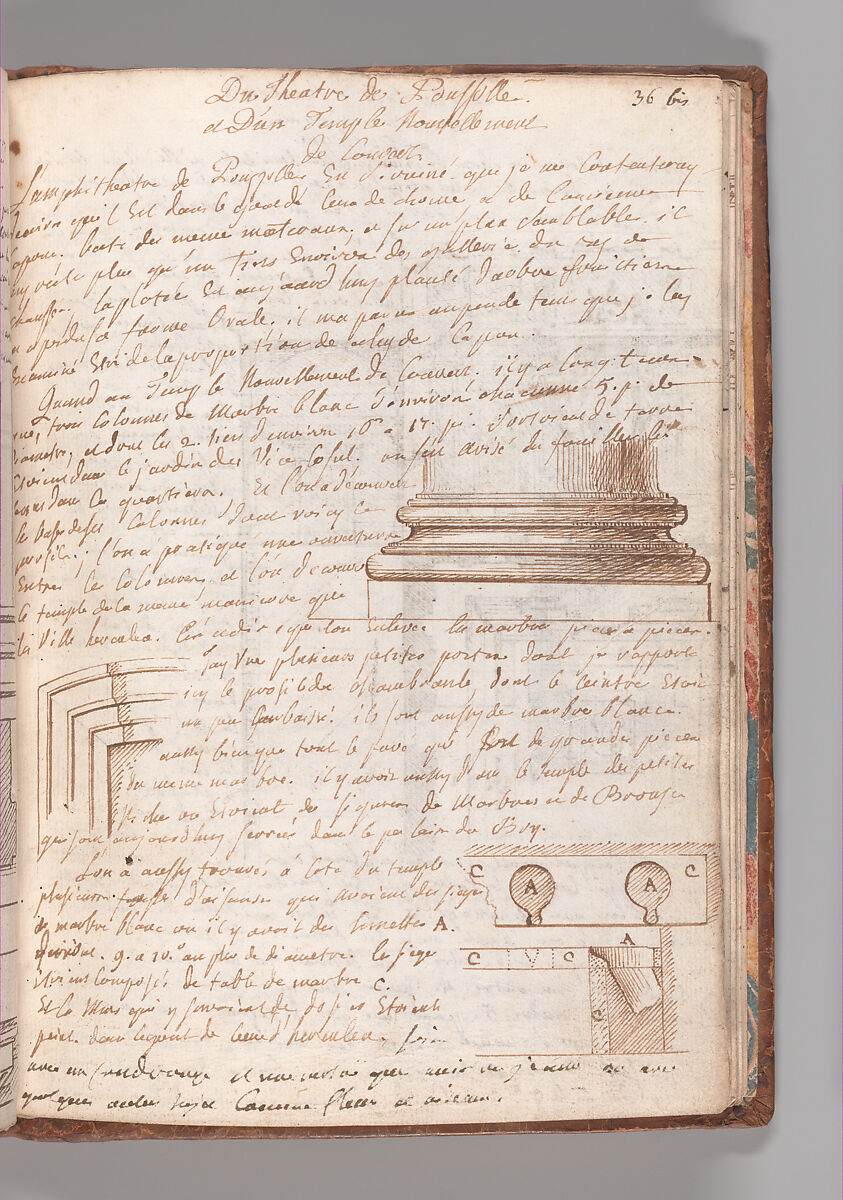 36 bis
Du Theatre de Poussolle
et D'un Temple Nouvellement
de Couvert.
L'amphitheatre de Pouzolle Est si ruiné que je me Contenteray
qu'il Est dans le de Rome et de L'ancienne
Capoue. bati des meme materiaux, et sur un plan semblable. il
n'y reste plus qu'un Tiers Environ des gallerie du rez de
chaussé, la Est aujourd'huy planté d'arbre fruitiere
a forme Ovale. il m'a parue au peude tems que j'e l'ay
Examiné Estre de la proportion de celuy de Capoue.
Quand au Temple Nouvellement de Couvert. il y a longtems
que, trois Colonnes de Marbre blanc d'environ chacunne 5. pi. de
diametre, et dont les 2. tiers d'environ 16 a 17. pi. Sortoient de terre
Etoient dans le jardin du Vice Consul. on s'est avisé de fouiller les
dans Ce quartiera. Et l'on a découvert
les bases de ses Colonnes dont voicy le
profile; l'on a pratiqué une ouverture
Entre les Colonnes, et l'on découvre
le temple de la meme maniere que
la Ville herculea. C'est a dire que l'on Enleve les marbre piece a piece.
J'ay Vue plusieurs petites porte dont je rapport
icy le profil de chambranle, dont le ceintre Etoit
un peu Surbaissé. ils sont aussy de marbre blanc.
aussy bien que tout le pavé qui Est de grande pieces
du meme marbre. il y avoit aussy dans le temple des petites
Niche ou Etoient, des figures de Marbres et de Bronze
qui sont aujourd'huy serrées dans le palais du Roy.
L'on a aussy trouvés a Coté du temple
plusieurs fosse d'aisance qui avoient des siege
de marbre blanc ou il y avoit des lunettes A.
d'environ. 9. a 10.° au plus de diametre. les siege
Etoient Composés de table de marbre C.
Et le Murs qui y servoient de dosier Etoient
peint dans le gout de ceux d'herculea,
avec un fond rouge et
quelques autre sujet Comme fleur et oiseau.
C A A C
A
C C
C